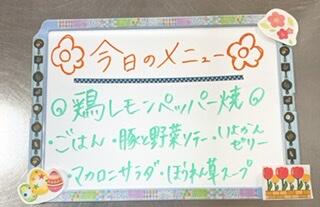 今日のメニュー
鶏レモンペッパー焼
・ごはん・豚と野菜ソテー・いよかんゼリー
・マカロニサラダ・ほうれん草スープ